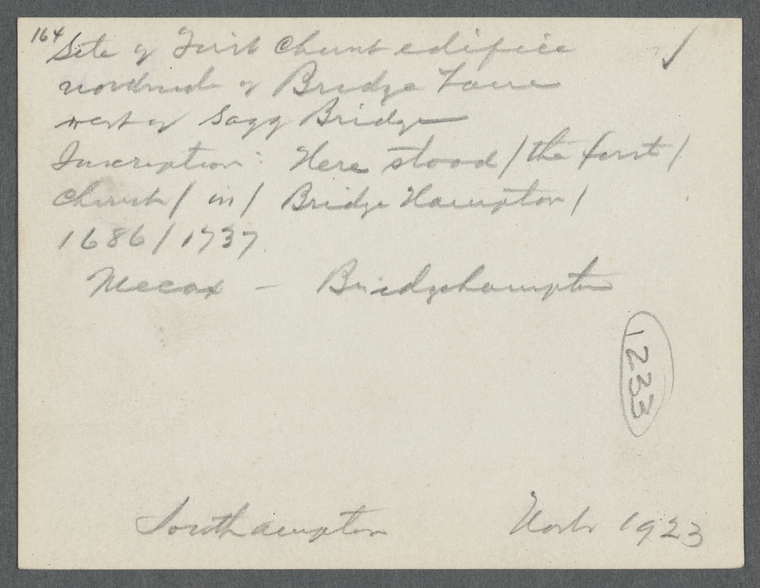 164
Site of First Church edifice
north side of Bridge Lane
west of Sagg Bridge
Inscription: Here stood / the first /
Church / in / Bridge Hampton /
1686 / 1737
Mecox — Bridgehampton
1233
Southampton 1923